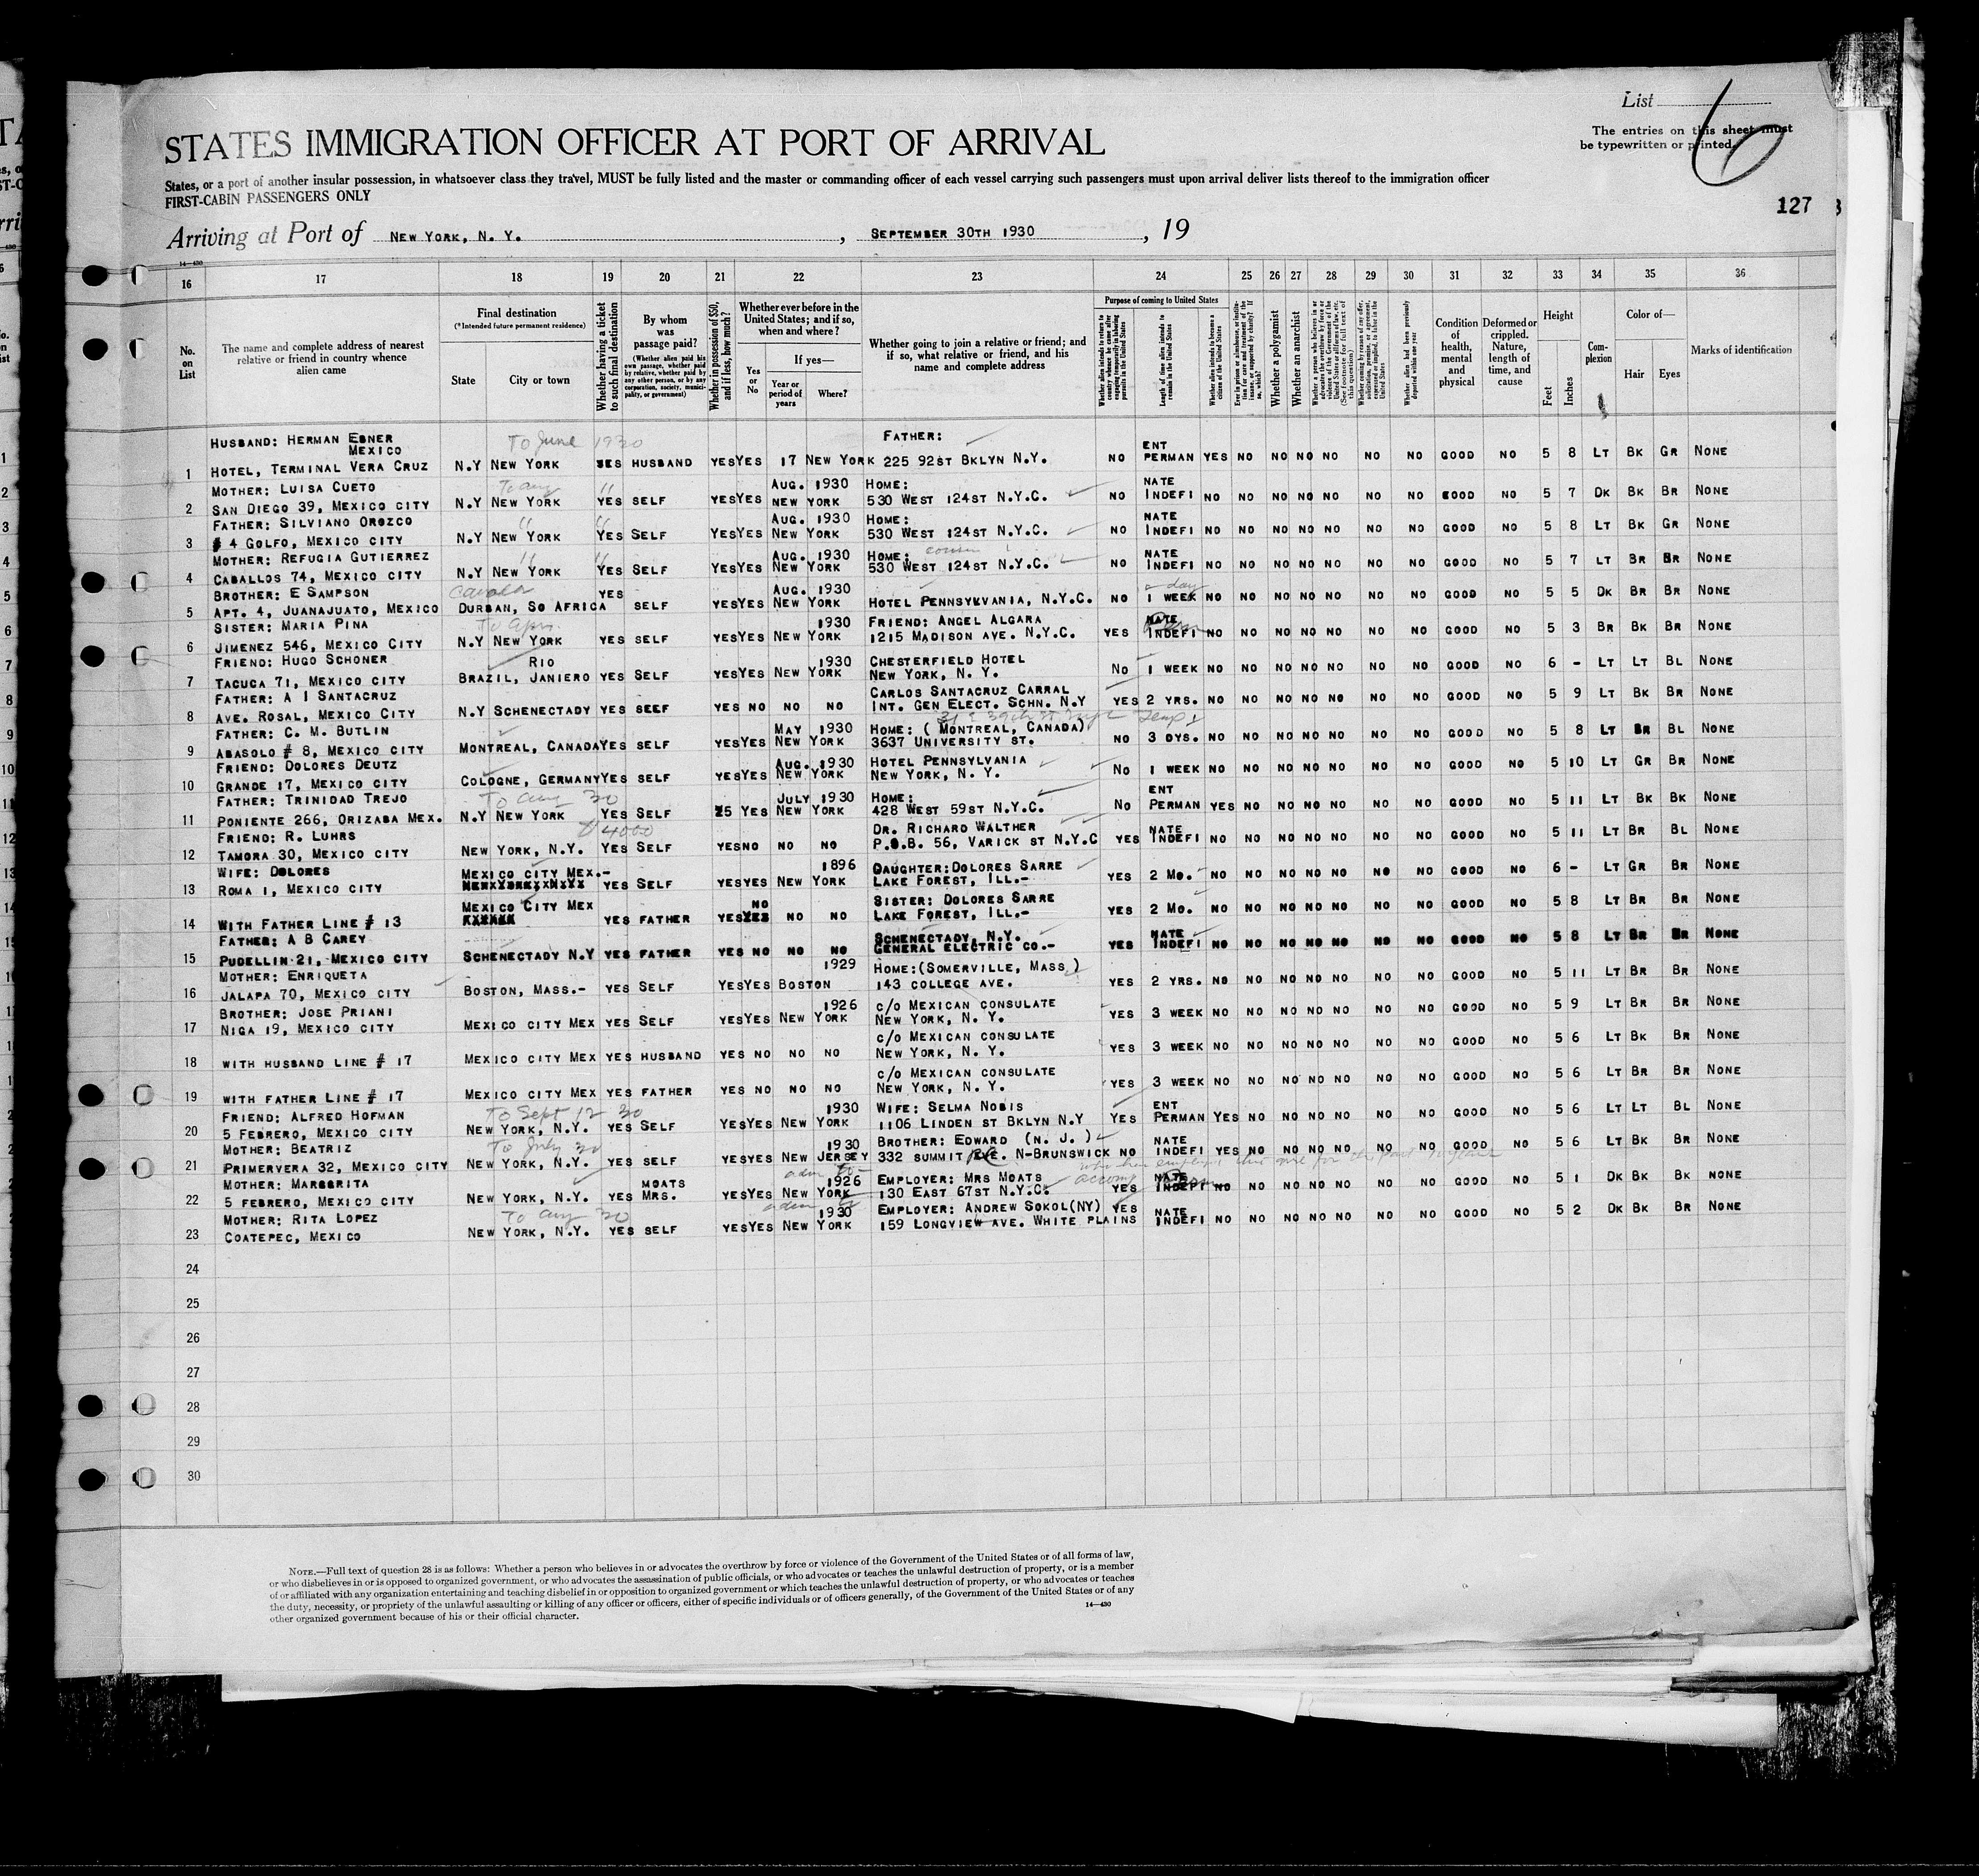 List 6
The entries on this sheet must
be typewritten or printed.
STATES IMMIGRATION OFFICER AT PORT OF ARRIVAL
States, or a port of another insular possession, in whatsoever class they travel, MUST be fully listed and the master or commanding officer of each vessel carrying such passengers must upon arrival deliver lists thereof to the immigration officer
FIRST-CABIN PASSENGERS ONLY
127
Arriving at Port of NEW YORK, N. Y. , SEPTEMBER 30TH 1930 , 19
14-430
16 17 18 19 20 21 22 23 24 25 26 27 28 29 30 31 32 33 34 35 36
No. on List
The name and complete address of nearest relative or friend in country whence alien came
Final destination
(*Intended future permanent residence)
State
City or town
Whether having a ticket to such final destination
By whom was passage paid?
(Whether alien paid his own passage, whether paid by relative, whether paid by any other person, or by any corporation, society, municipality, or government)
Whether in possession of $50, and if less, how much?
Whether ever before in the United States; and if so, when and where?
Yes or No
If yes—
Year or period of years
Where?
Whether going to join a relative or friend; and if so, what relative or friend, and his name and complete address
Purpose of coming to United States
Length of time alien intends to remain in the United States
Whether alien intends to become a citizen of the United States
Whether a polygamist
Whether an anarchist
Condition of health, mental and physical
Deformed or crippled. Nature, length of time, and cause
Height
Feet
Inches
Complexion
Color of—
Hair
Eyes
Marks of identification
HUSBAND: HERMAN EBNER To June 1930 FATHER:
MEXICO ENT
1 HOTEL, TERMINAL VERA CRUZ N.Y NEW YORK YES HUSBAND YES YES 17 NEW YORK 225 92ST BKLYN N.Y. NO PERMAN YES NO NO NO NO NO NO GOOD NO 5 8 LT BK GR NONE
MOTHER: LUISA CUETO To aug " AUG. 1930 HOME: NATE
2 SAN DIEGO 39, MEXICO CITY N.Y NEW YORK YES SELF YES YES NEW YORK 530 WEST 124ST N.Y.C. NO INDEFI NO NO NO NO NO NO NO GOOD NO 5 7 DK BK BR NONE
FATHER: SILVIANO OROZCO " " AUG. 1930 HOME: NATE
3 # 4 GOLFO, MEXICO CITY N.Y NEW YORK YES SELF YES YES NEW YORK 530 WEST 124ST N.Y.C. NO INDEFI NO NO NO NO NO NO NO GOOD NO 5 8 LT BK GR NONE
MOTHER: REFUGIA GUTIERREZ " " AUG. 1930 HOME: cousin NATE
4 CABALLOS 74, MEXICO CITY N.Y NEW YORK YES SELF YES YES NEW YORK 530 WEST 124ST N.Y.C. NO INDEFI NO NO NO NO NO NO NO GOOD NO 5 7 LT BR BR NONE
BROTHER: E SAMPSON YES AUG. 1930 day
5 APT. 4, JUANAJUATO, MEXICO DURBAN, SO AFRICA SELF YES YES NEW YORK HOTEL PENNSYLVANIA, N.Y.C. NO 1 WEEK NO NO NO NO NO NO NO GOOD NO 5 5 DK BR BR NONE
SISTER: MARIA PINA 1930 FRIEND: ANGEL ALGARA NATE
6 JIMENEZ 546, MEXICO CITY N.Y NEW YORK YES SELF YES YES NEW YORK 1215 MADISON AVE. N.Y.C. YES INDEFI NO NO NO NO NO NO NO GOOD NO 5 3 BR BK BR NONE
FRIEND: HUGO SCHONER RIO 1930 CHESTERFIELD HOTEL
7 TACUCA 71, MEXICO CITY BRAZIL, JANIERO YES SELF YES YES NEW YORK NEW YORK, N. Y. NO 1 WEEK NO NO NO NO NO NO NO GOOD NO 6 - LT LT BL NONE
FATHER: A I SANTACRUZ CARLOS SANTACRUZ CARRAL
8 AVE. ROSAL, MEXICO CITY N.Y SCHENECTADY YES SELF YES NO NO NO INT. GEN ELECT. SCHN. N.Y YES 2 YRS. NO NO NO NO NO NO NO GOOD NO 5 9 LT BK BR NONE
FATHER: C. M. BUTLIN MAY 1930 HOME: ( MONTREAL, CANADA)
9 ABASOLO # 8, MEXICO CITY MONTREAL, CANADA YES SELF YES YES NEW YORK 3637 UNIVERSITY ST. NO 3 DYS. NO NO NO NO NO NO NO GOOD NO 5 8 LT BR BL NONE
FRIEND: DOLORES DEUTZ AUG. 1930 HOTEL PENNSYLVANIA
10 GRANDE 17, MEXICO CITY COLOGNE, GERMANY YES SELF YES YES NEW YORK NEW YORK, N. Y. NO 1 WEEK NO NO NO NO NO NO NO GOOD NO 5 10 LT GR BR NONE
FATHER: TRINIDAD TREJO To aug 30 JULY 1930 HOME: ENT
11 PONIENTE 266, ORIZABA MEX. N.Y NEW YORK YES SELF 25 YES NEW YORK 428 WEST 59ST N.Y.C. NO PERMAN YES NO NO NO NO NO NO GOOD NO 5 11 LT BK BK NONE
FRIEND: R. LUHRS $4000 DR. RICHARD WALTHER NATE
12 TAMORA 30, MEXICO CITY NEW YORK, N.Y. YES SELF YES NO NO NO P.O.B. 56, VARICK ST N.Y.C YES INDEFI NO NO NO NO NO NO NO GOOD NO 5 11 LT BR BL NONE
WIFE: DOLORES MEXICO CITY MEX.- 1896 DAUGHTER: DOLORES SARRE
13 ROMA 1, MEXICO CITY YES SELF YES YES NEW YORK LAKE FOREST, ILL.- YES 2 MO. NO NO NO NO NO NO NO GOOD NO 6 - LT GR BR NONE
MEXICO CITY MEX NO SISTER: DOLORES SARRE
14 WITH FATHER LINE # 13 XXXXXX YES FATHER YES YES NO NO LAKE FOREST, ILL.- YES 2 MO. NO NO NO NO NO NO NO GOOD NO 5 8 LT BR BR NONE
FATHER: A B CAREY SCHENECTADY, N.Y. NATE
15 PUDELLIN 21, MEXICO CITY SCHENECTADY N.Y YES FATHER YES NO NO NO GENERAL ELECTRIC CO.- YES INDEFI NO NO NO NO NO NO NO GOOD NO 5 8 LT BR BR NONE
MOTHER: ENRIQUETA 1929 HOME: (SOMERVILLE, MASS)
16 JALAPA 70, MEXICO CITY BOSTON, MASS.- YES SELF YES YES BOSTON 143 COLLEGE AVE. YES 2 YRS. NO NO NO NO NO NO NO GOOD NO 5 11 LT BR BR NONE
BROTHER: JOSE PRIANI 1926 C/O MEXICAN CONSULATE
17 NIGA 19, MEXICO CITY MEXICO CITY MEX YES SELF YES YES NEW YORK NEW YORK, N. Y. YES 3 WEEK NO NO NO NO NO NO NO GOOD NO 5 9 LT BR BR NONE
C/O MEXICAN CONSULATE
18 WITH HUSBAND LINE # 17 MEXICO CITY MEX YES HUSBAND YES NO NO NO NEW YORK, N. Y. YES 3 WEEK NO NO NO NO NO NO NO GOOD NO 5 6 LT BK BR NONE
C/O MEXICAN CONSULATE
19 WITH FATHER LINE # 17 MEXICO CITY MEX YES FATHER YES NO NO NO NEW YORK, N. Y. YES 3 WEEK NO NO NO NO NO NO NO GOOD NO 5 6 LT BR BR NONE
FRIEND: ALFRED HOFMAN To Sept 12 30 1930 WIFE: SELMA NOBIS ENT
20 5 FEBRERO, MEXICO CITY NEW YORK, N.Y. YES SELF YES YES NEW YORK 1106 LINDEN ST BKLYN N.Y YES PERMAN YES NO NO NO NO NO NO GOOD NO 5 6 LT LT BL NONE
MOTHER: BEATRIZ To July 30 1930 BROTHER: EDWARD (N. J.) NATE
21 PRIMERVERA 32, MEXICO CITY NEW YORK, N.Y. YES SELF YES YES NEW JERSEY 332 SUMMIT N-BRUNSWICK NO INDEFI YES NO NO NO NO NO NO GOOD NO 5 6 LT BK BR NONE
MOTHER: MARGRITA MOATS 1926 EMPLOYER: MRS MOATS NATE
22 5 FEBRERO, MEXICO CITY NEW YORK, N.Y. YES MRS. YES YES NEW YORK 130 EAST 67ST N.Y.C. YES INDEFI NO NO NO NO NO NO NO GOOD NO 5 1 DK BK BK NONE
MOTHER: RITA LOPEZ To aug 30 1930 EMPLOYER: ANDREW SOKOL(NY) YES NATE
23 COATEPEC, MEXICO NEW YORK, N.Y. YES SELF YES YES NEW YORK 159 LONGVIEW AVE. WHITE PLAINS INDEFI NO NO NO NO NO NO NO GOOD NO 5 2 DK BK BR NONE
24
25
26
27
28
29
30
NOTE.—Full text of question 28 is as follows: Whether a person who believes in or advocates the overthrow by force or violence of the Government of the United States or of all forms of law,
or who disbelieves in or is opposed to organized government, or who advocates the assassination of public officials, or who advocates or teaches the unlawful destruction of property, or is a member
of or affiliated with any organization entertaining and teaching disbelief in or opposition to organized government or which teaches the unlawful destruction of property, or who advocates or teaches
the duty, necessity, or propriety of the unlawful assaulting or killing of any officer or officers, either of specific individuals or of officers generally, of the Government of the United States or of any
other organized government because of his or their official character.
14-430